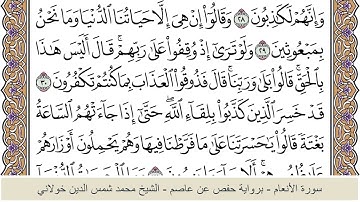 وَإِنَّهُمْ لَكَٰذِبُونَ ٢٨ وَقَالُوٓا۟ إِنْ هِىَ إِلَّا حَيَاتُنَا ٱلدُّنْيَا وَمَا نَحْنُ
بِمَبْعُوثِينَ ٢٩ وَلَوْ تَرَىٰٓ إِذْ وُقِفُوا۟ عَلَىٰ رَبِّهِمْ ۚ قَالَ أَلَيْسَ هَٰذَا
بِٱلْحَقِّ ۚ قَالُوا۟ بَلَىٰ وَرَبِّنَا ۚ قَالَ فَذُوقُوا۟ ٱلْعَذَابَ بِمَا كُنتُمْ تَكْفُرُونَ ٣٠
قَدْ خَسِرَ ٱلَّذِينَ كَذَّبُوا۟ بِلِقَآءِ ٱللَّهِ ۖ حَتَّىٰٓ إِذَا جَآءَتْهُمُ ٱلسَّاعَةُ
بَغْتَةً قَالُوا۟ يَٰحَسْرَتَنَا عَلَىٰ مَا فَرَّطْنَا فِيهَا وَهُمْ يَحْمِلُونَ أَوْزَارَهُمْ
سورة الأنعام - برواية حفص عن عاصم - الشيخ محمد شمس الدين خولاني